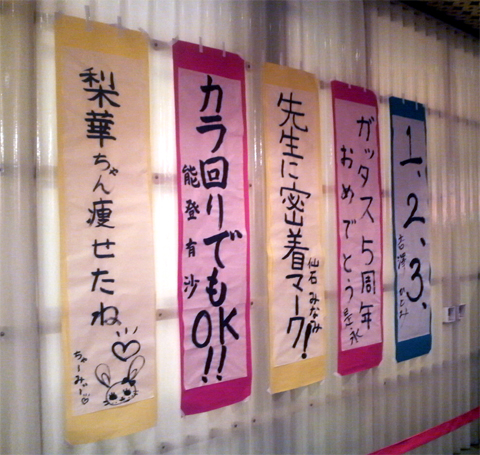 梨華ちゃん痩せたね
ちゃーみぃー♡
カラ回りでもOK!!
能登有沙
先生に密着マーク!
仙石みなみ
ガッタス5周年
おめでとう
是永
1、2、3、
吉澤ひとみ